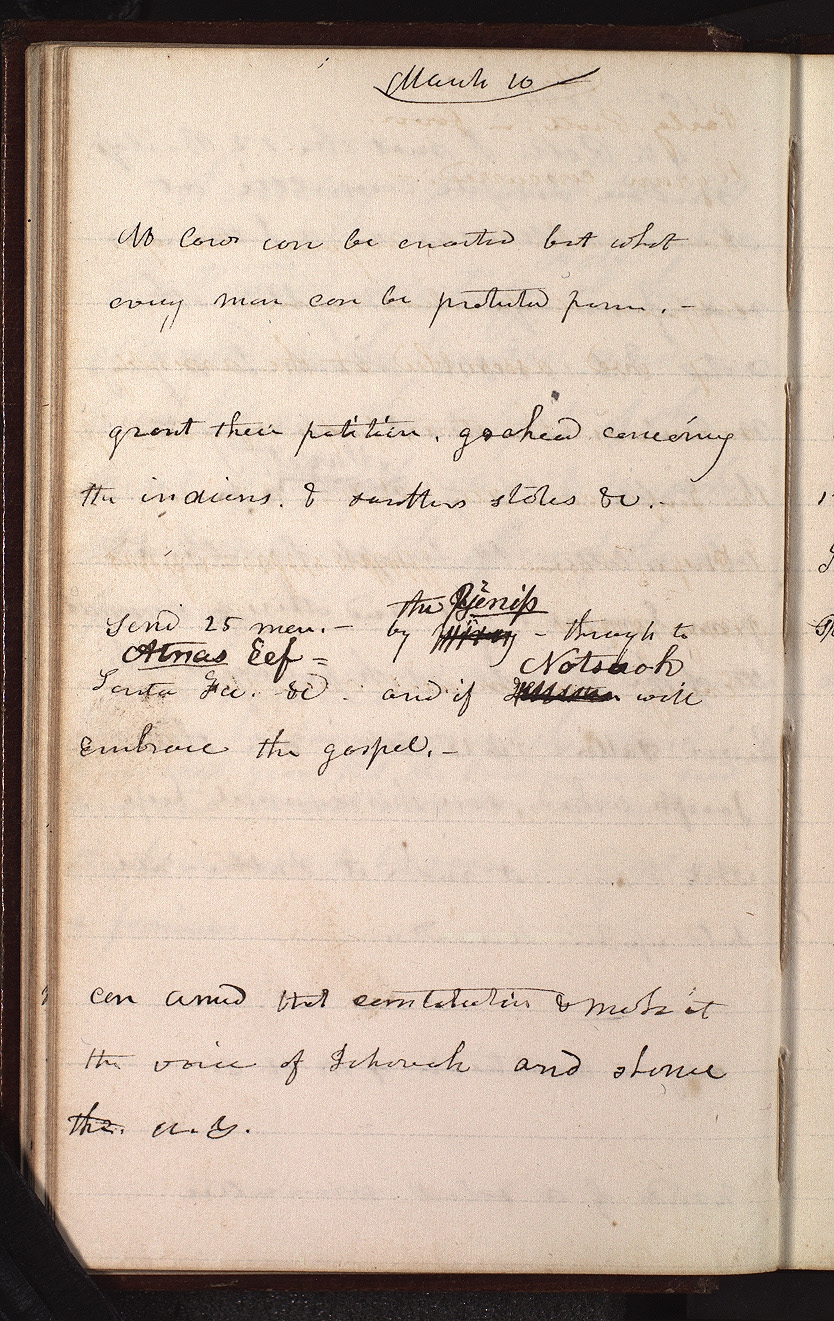 March 10
No law can be enacted but what
every man can be protected from. -
grant their petition, go ahead concerning
the indians. & southern states &c. -
the Yjeniss
Send 25 men. - by - through to
Atnas Eef =
Notsuoh
Santa Fee. &c . and if will
Embrace the gospel. -
can amend that constitution & make it
the voice of Jehovah and shame
the. U.S.